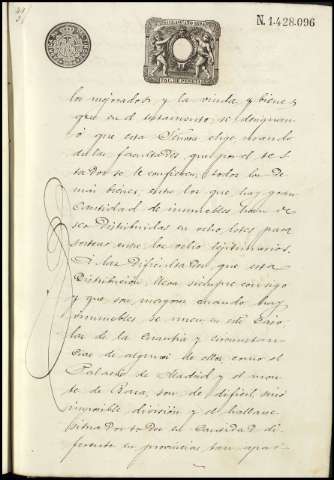 N. 1.428.096
los mejorados, y la viuda y bienes
que en el testamento, se designan
ó que esta Señora elige usando
de las facultades que por el tes
tador se le confieren, todos los de
más bienes, entre los que hay gran
cantidad de inmuebles, han de
ser distribuidos en ocho lotes para
sortear entre los ocho legitimarios.
A las dificultades que esta
distribución lleva siempre consigo
y que son mayores cuando hay
inmuebles, se unen en este caso
las de la cuantía y circunstan
cias de algunos de ellos como el
Palacio de Madrid y el monte
de son de dificil, sino
imposible división y el hallarse
situados todos en cantidad di
ferente en provincias tan apar